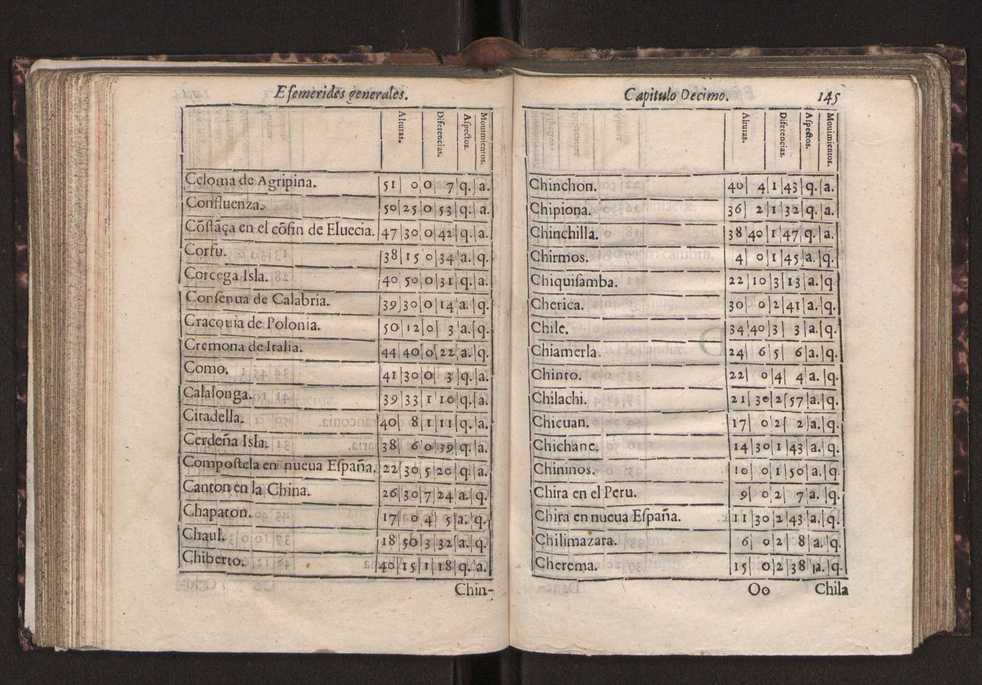 Efemerides generales.
Alturas. Diferencias. Aspectos. Mouimientos.
Coloma de Agripina. 51 0 0 7 q. a.
Confluenza. 50 25 0 53 q. a.
Cōstāça en el cōfin de Eluecia. 47 30 0 42 q. a.
Corfu. 38 15 0 34 a. q.
Corcega Isla. 40 50 0 31 q. a.
Consenua de Calabria. 39 30 0 14 a. q.
Cracouia de Polonia. 50 12 0 3 a. q.
Cremona de Italia. 44 40 0 22 a. q.
Como. 41 30 0 3 q. a.
Calalonga. 39 33 1 10 q. a.
Citadella. 40 8 1 11 q. a.
Cerdeña Isla. 38 6 0 39 q. a.
Compostela en nueua España. 22 30 5 20 q. a.
Canton en la China. 26 30 7 24 a. q.
Chapaton. 17 0 4 5 a. q.
Chaul. 18 50 3 32 a. q.
Chiberto. 40 15 1 18 q. a.
Chin-
Capitulo Decimo. 145
Alturas. Diferencias. Aspectos. Mouimientos.
Chinchon. 40 4 1 43 q. a.
Chipiona. 36 2 1 32 q. a.
Chinchilla. 38 40 1 47 q. a.
Chirmos. 4 0 1 45 a. q.
Chiquisamba. 22 10 3 13 a. q.
Cherica. 30 0 2 41 a. q.
Chile. 34 40 3 3 a. q.
Chiamerla. 24 6 5 6 a. q.
Chinto. 22 0 4 4 a. q.
Chilachi. 21 30 2 57 a. q.
Chicuan. 17 0 2 2 a. q.
Chichane. 14 30 1 43 a. q.
Chininos. 10 0 1 50 a. q.
Chira en el Peru. 9 0 2 7 a. q.
Chira en nueua España. 11 30 2 43 a. q.
Chilimazara. 6 0 2 8 a. q.
Cherema. 15 0 2 38 a. q.
Oo Chila